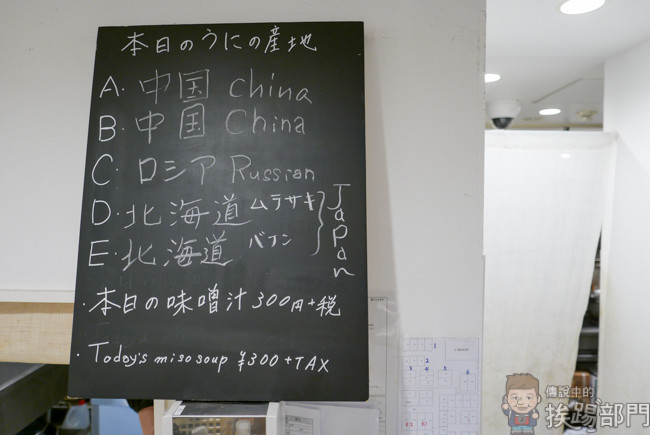 本日のうにの産地
A. 中国 China
B. 中国 China
C. ロシア Russian
D. 北海道 ムラサキ
E. 北海道 バフン
Japan
・本日の味噌汁 300円+税
・Today's miso soup ¥300+TAX
傳說中的
挨踢部門